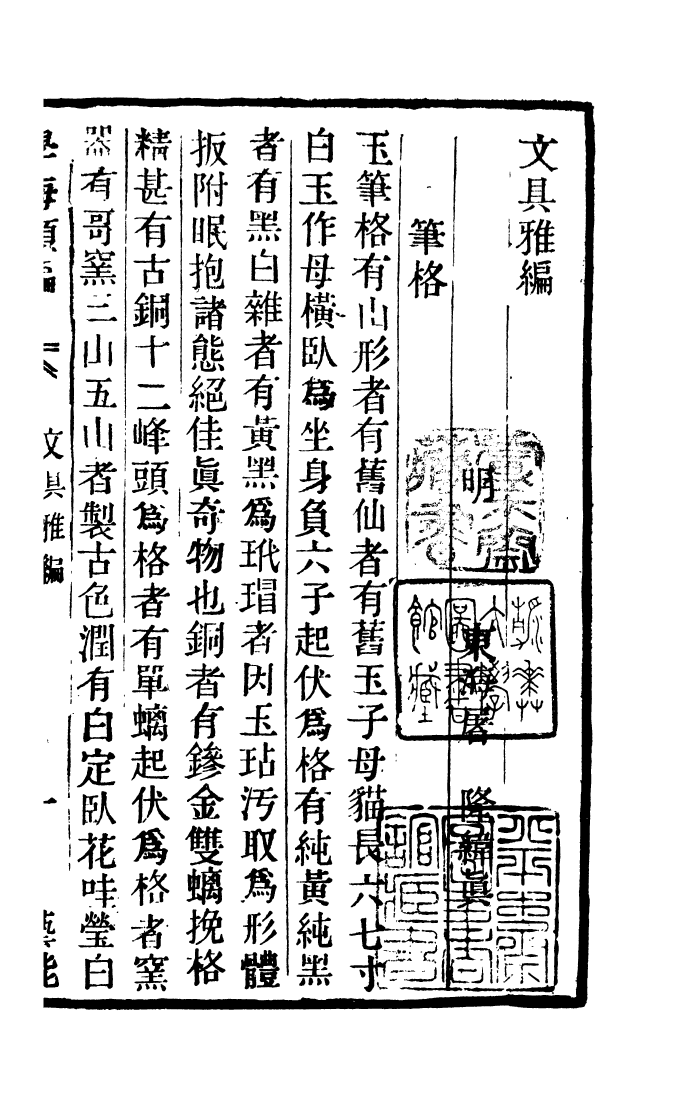 文具雅編
明　東海屠　隆緯眞
筆格
玉筆格有山形者有舊仙者有舊玉子母猫長六七寸
白玉作母橫臥爲坐身負六子起伏爲格有純黃純黑
者有黑白雜者有黃黑爲玳瑁者因玉玷汚取爲形體
扳附眠抱諸態絕佳眞奇物也銅者有鏒金雙螭挽格
精甚有古銅十二峰頭爲格者有單螭起伏爲格者窯
器有哥窯三山五山者製古色潤有白定臥花哇瑩白
學海類編　文具雅編　一　藝能
燕京大學圖書館藏